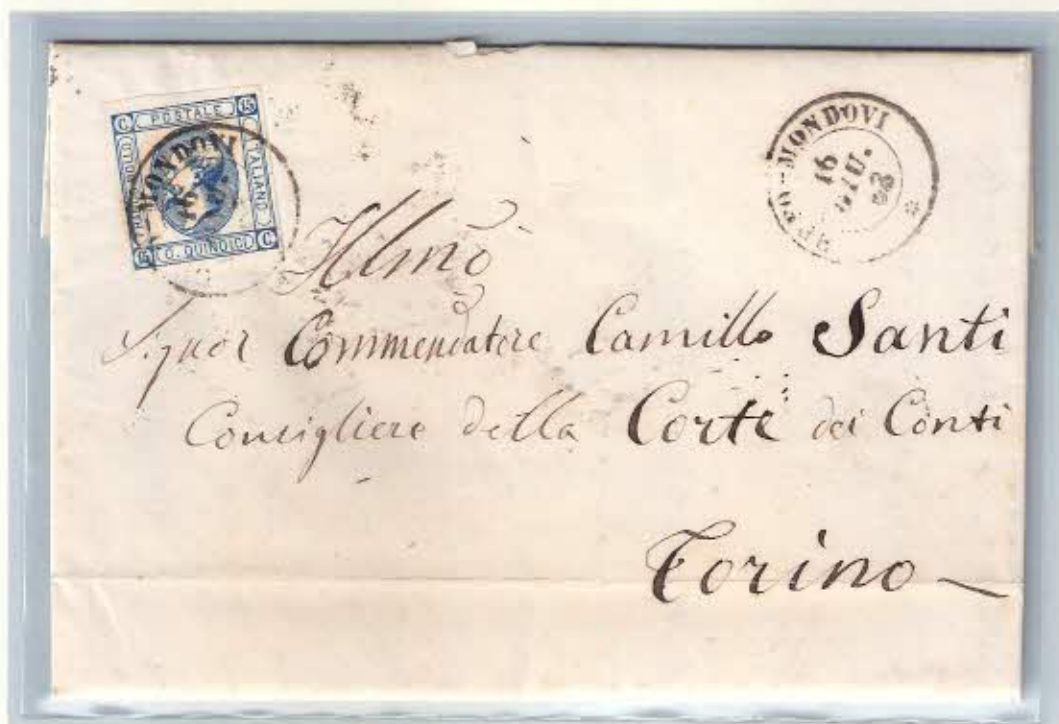 C POSTALE 15
FRANCOBOLLO
ITALIANO
15 C. QUINDICI C
MONDOVI
16
MONDOVI
16
GIU.
63
Illmo
Signor Commendatore Camillo Santi
Consigliere della Corte dei Conti
Torino